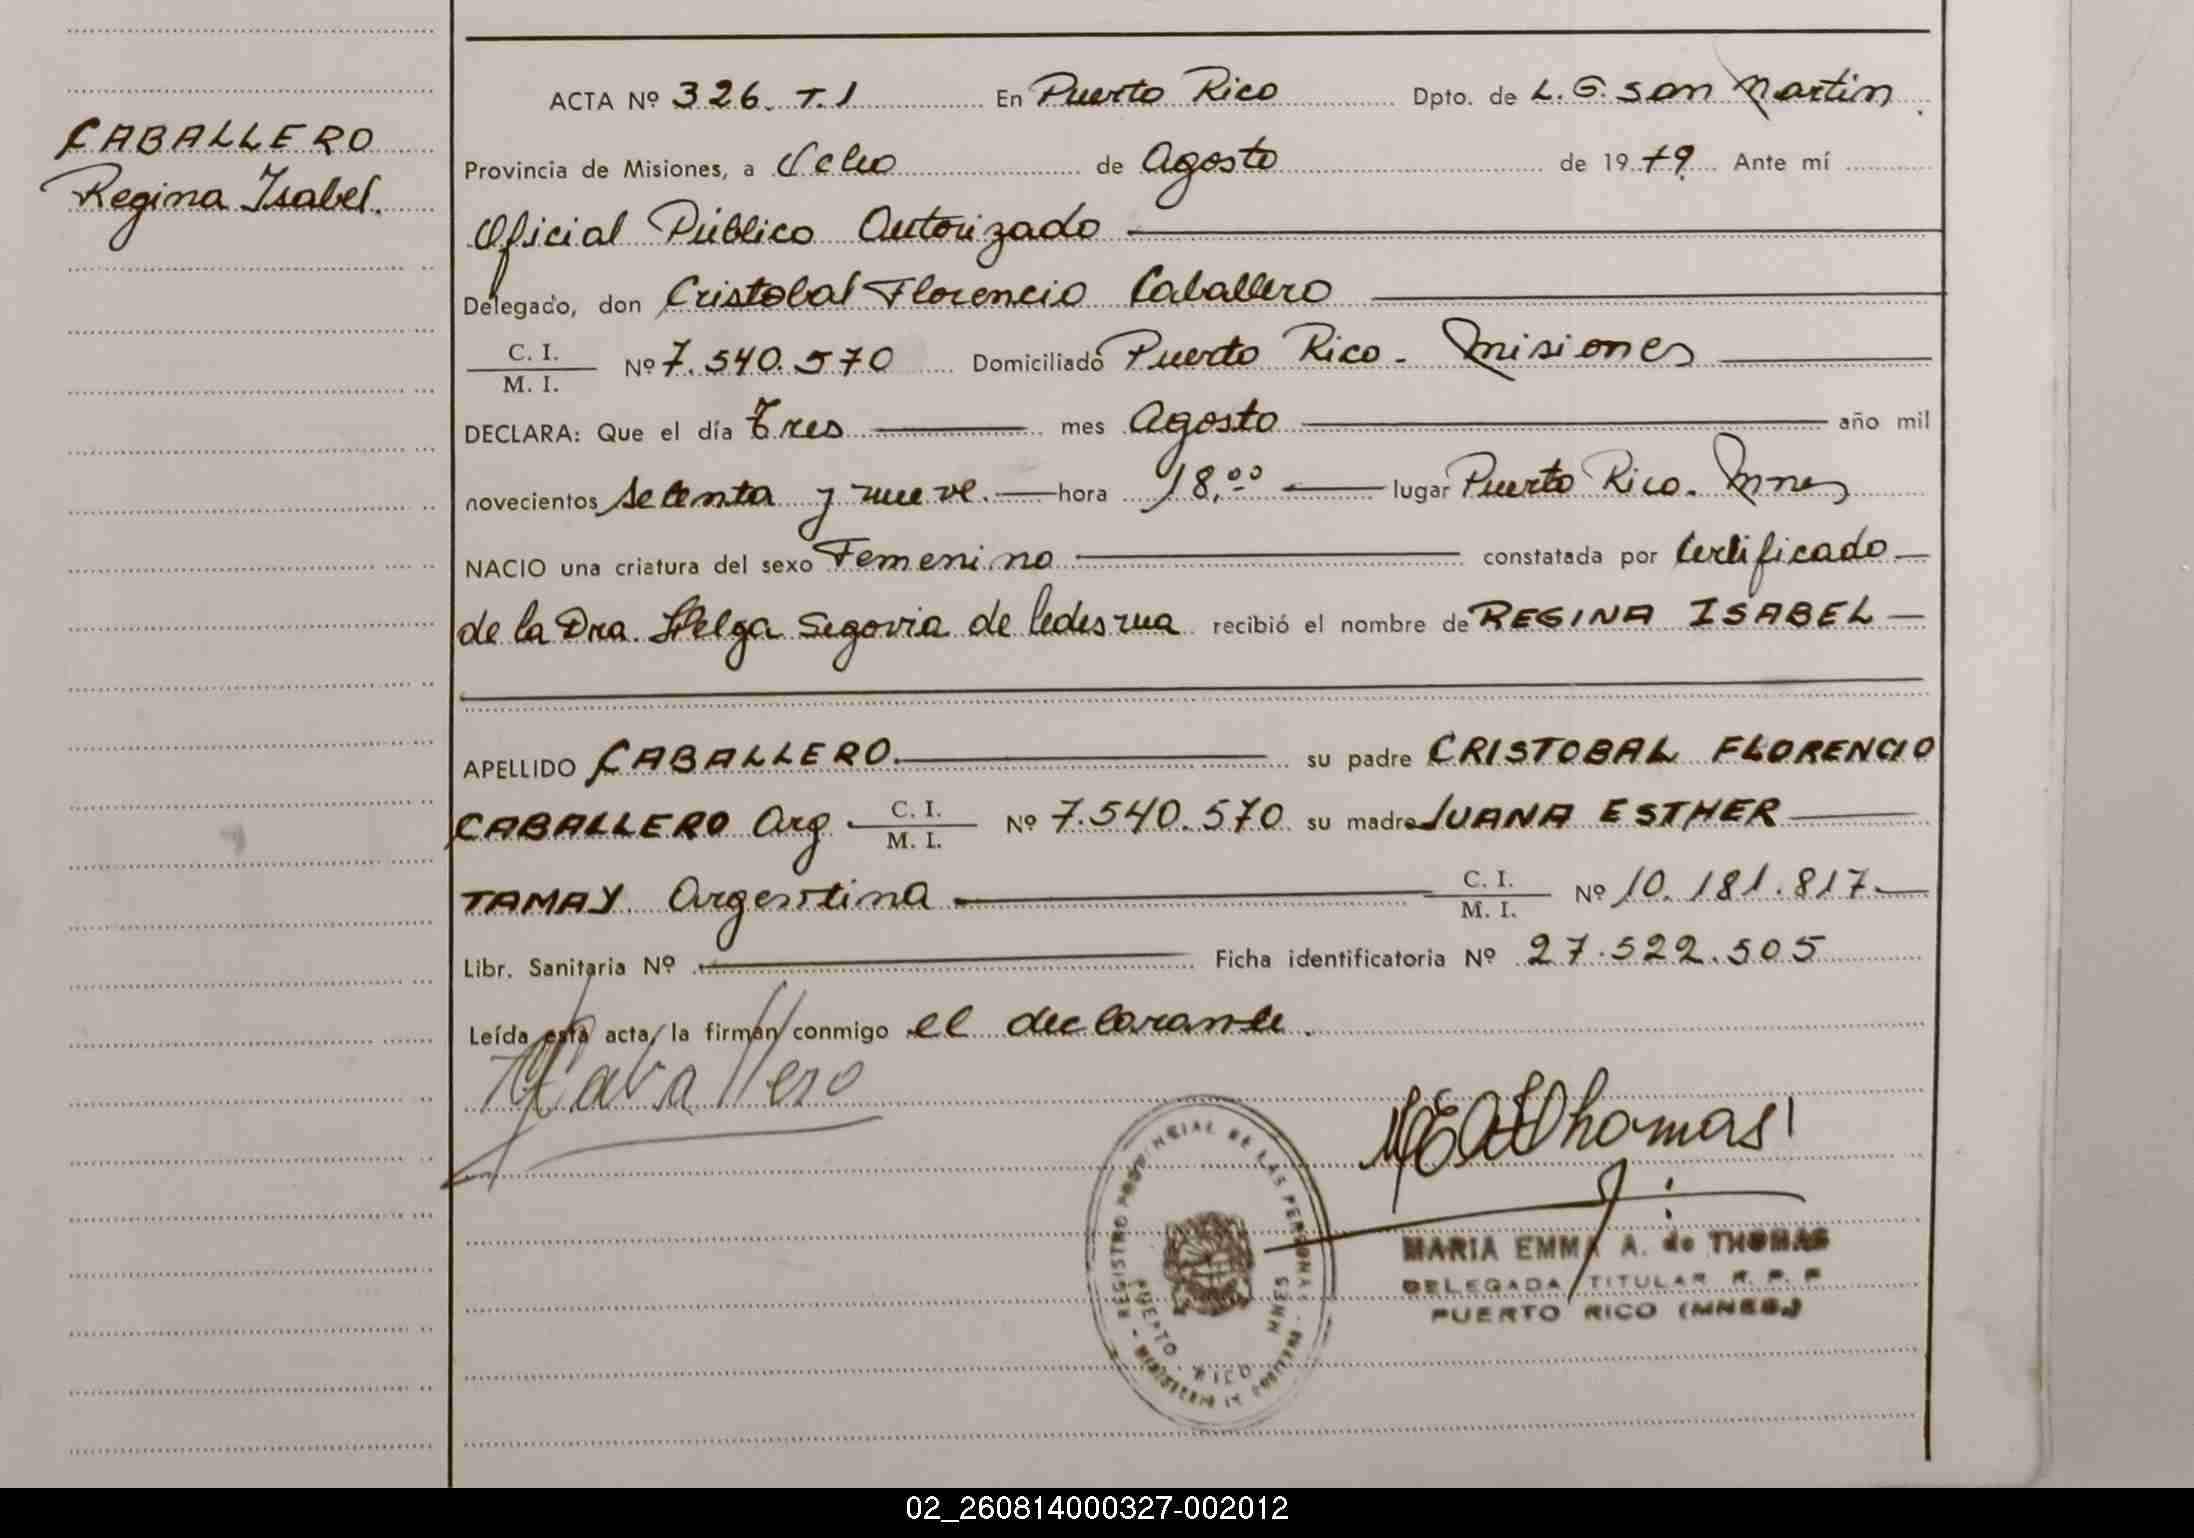 CABALLERO
Regina Isabel.
ACTA Nº 326. T.1 En Puerto Rico Dpto. de L.G. San Martin.
Provincia de Misiones, a Ocho de Agosto de 1979. Ante mí
Oficial Público Autorizado
Delegado, don Cristobal Florencio Caballero
C. I.
M. I.
Nº 7.540.570 Domiciliado Puerto Rico - Misiones
DECLARA: Que el día Tres mes Agosto año mil
novecientos setenta y nueve. hora 18,00 lugar Puerto Rico. Mnes
NACIO una criatura del sexo Femenino constatada por Certificado
de la Dra. Helga Segovia de Ledesma recibió el nombre de REGINA ISABEL
APELLIDO CABALLERO. su padre CRISTOBAL FLORENCIO
CABALLERO Arg. C. I. M. I. Nº 7.540.570 su madre JUANA ESTHER
TAMAY Argentina C. I. M. I. Nº 10.181.817.
Libr. Sanitaria Nº Ficha identificatoria Nº 27.522.505
Leída esta acta, la firman conmigo el declarante.
Caballero
MEA Thomas
REGISTRO PROVINCIAL DE LAS PERSONAS
PUERTO RICO MNES
MARIA EMMA A. de THOMAS
DELEGADA TITULAR R. P. P
PUERTO RICO (MNES.)
02_260814000327-002012